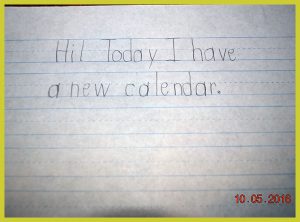 Hi! Today I have
a new calendar.
10.05.2016